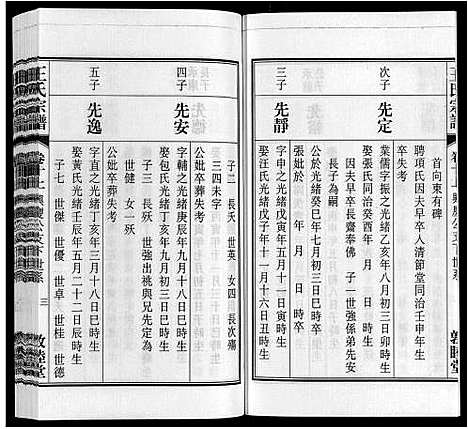 首向東有碑
聘項氏因夫早卒人清節堂同治壬申年生
卒失考
次子
先定
業儒字振之光緒乙亥年八月初三日卯時生
娶張氏同治癸酉年 月 日 時生
因夫早卒長齋奉佛 子一 世強係弟先安
長子為嗣
公於光緒癸巳年七月初三日時卒
張妣於 年 月 日 時卒
三子
先靜
字申之光緒戊寅年五月十一日寅時生
娶汪氏光緒戊子年十一月十六日丑時生
王氏宗譜
卷十二
敦睦堂
王氏宗譜
卷十二
三
敦睦堂
子二 長殀 世英 女四 長次殤
三四未字
四子
先安
字輔之光緒庚辰年九月十八日巳時生
娶包氏光緒丁亥年九月初三日時生
子三 長殀 世強出祧與兄先定為
世健 女一殀
公妣卒葬失考
五子
先逸
字直之光緒丁亥年三月十八日巳時生
娶黃氏光緒壬辰年五月二十二日辰時生
公妣卒葬失考
子七 世傑 世優 世卓 世桂 世德